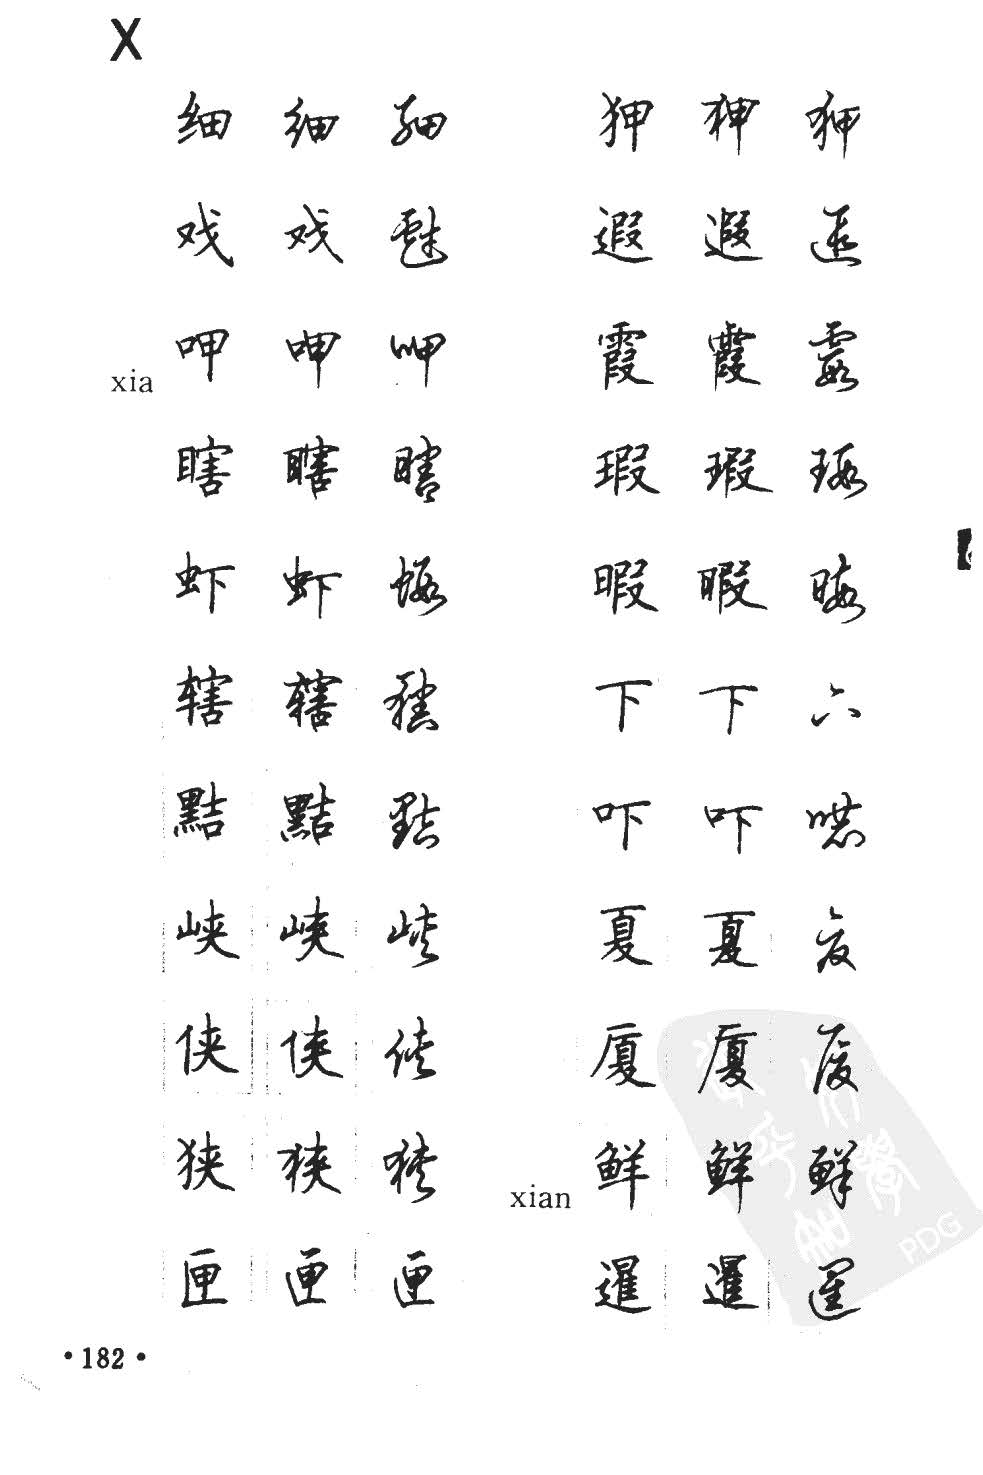 X
细 细 细
戏 戏 戲
xia 呷 呷 呷
瞎 瞎 瞎
虾 虾 蝦
辖 辖 轄
黠 黠 黠
峡 峡 峡
侠 侠 侠
狭 狭 狭
匣 匣 匣
狎 狎 狎
遐 遐 遐
霞 霞 霞
瑕 瑕 瑕
暇 暇 暇
下 下 下
吓 吓 嚇
夏 夏 夏
厦 厦 厦
xian 鲜 鲜 鮮
暹 暹 暹
·182·
PDG